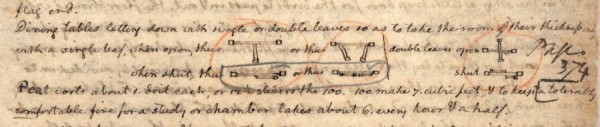 flag end.
Dining tables letting down with single or double leaves so as to take the room of their thickness
with a single leaf, when open, thus or thus double leaves open
when shut, thus or thus shut 374
Peat costs about 1. doit each, or 12½ stivers the 100. 100 make 7. cubic feet & to keep a tolerably
comfortable fire for a study or chamber takes about 6. every hour & a half.